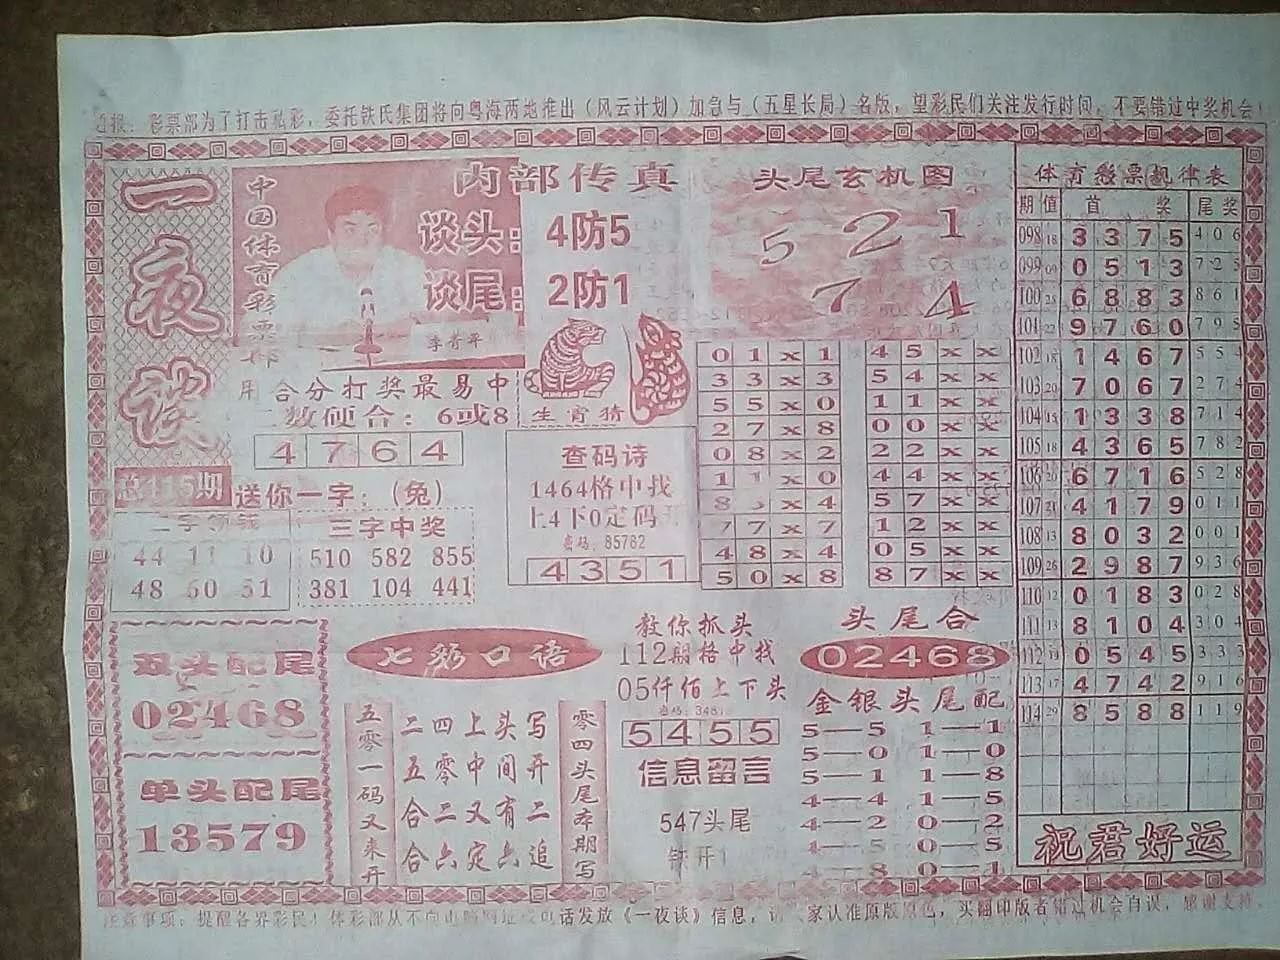 通报：彩票部为了打击私彩，委托铁氏集团将向粤海两地推出（风云计划）加急与（五星长局）名版，望彩民们关注发行时间，不要错过中奖机会！
一夜谈
中国体育彩票部
内部传真
谈头：4防5
谈尾：2防1
李青平
用合分打奖最易中
二数硬合：6或8
4 7 6 4
生肖猜
总115期
送你一字：（兔）
44 11 10
48 60 51
三字中奖
510 582 855
381 104 441
查码诗
1464格中找
上4下0定码
密码：85782
4 3 5 1
头尾玄机图
5 2 1
7 4
0 1 x 1
3 3 x 3
5 5 x 0
2 7 x 8
0 8 x 2
1 1 x 0
8 x 4
7 7 x 7
4 8 x 4
5 0 x 8
4 5 x x
5 4 x x
1 1 x x
0 0 x x
2 2 x x
4 4 x x
5 7 x x
1 2 x x
0 5 x x
8 7 x x
双头配尾
02468
单头配尾
13579
七彩口语
五零一码又来开
二四上头写
五零中间开
合二又有二
合六定六追
零四头尾本期写
教你抓头
112期格中找
05仟佰上下头
5 4 5 5
信息留言
547头尾
头尾合
02468
金银头尾配
5—5 1—1
5—0 1—0
5—1 1—8
4—4 1—5
4—2 0—2
4—5 0—5
4—8 0—1
体育彩票规律表
期 值 首奖 尾奖
098 18 3 3 7 5 4 0 6
099 09 0 5 1 3 7 2 5
100 25 6 8 8 3 8 6 1
101 22 9 7 6 0 7 9 5
102 18 1 4 6 7 5 5 4
103 20 7 0 6 7 2 7 4
104 15 1 3 3 8 7 1 4
105 18 4 3 6 5 7 8 2
106 20 6 7 1 6 5 2 8
107 21 4 1 7 9 0 1 1
108 13 8 0 3 2 0 0 1
109 26 2 9 8 7 9 3 6
110 12 0 1 8 3 0 2 8
111 13 8 1 0 4 3 0 4
112 14 0 5 4 5 3 3 3
113 17 4 7 4 2 9 1 6
114 29 8 5 8 8 1 1 9
祝君好运
注意事项：提醒各界彩民！体彩部从不向电话发放《一夜谈》信息，家认准原版原色，买翻印版者错过机会自误，感谢支持。